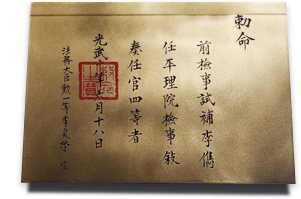 勅命
前檢事試補李儁
任平理院檢事敍
奏任官四等者
光武 年 月十八日
法務大臣勲一等李 榮